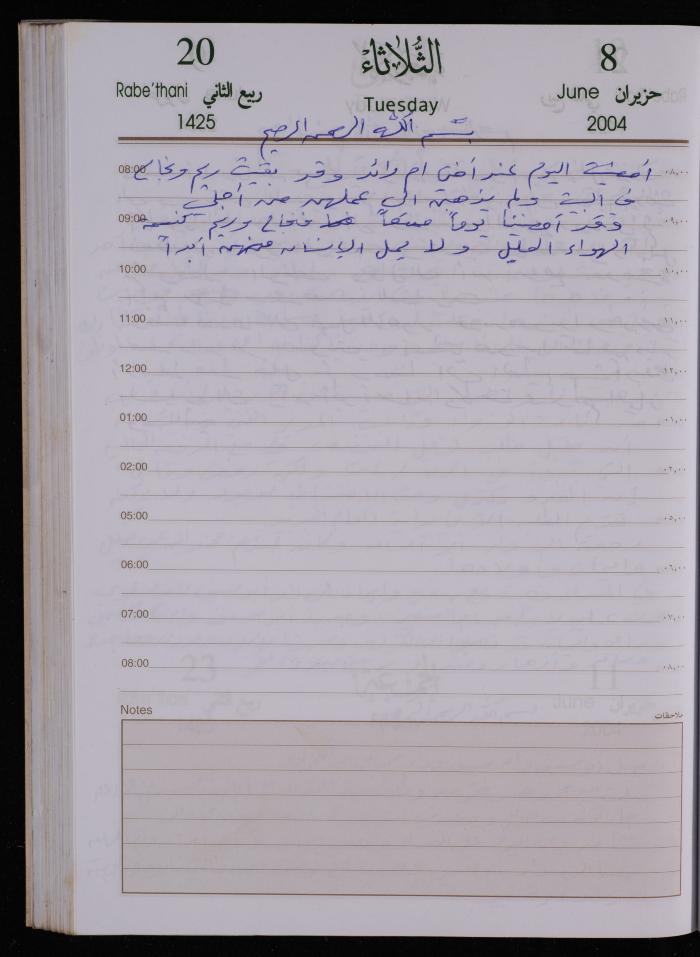 20 الثلاثاء 8
Rabe'thani ربيع الثاني Tuesday June حزيران
1425 2004
بسم الله الرحمن الرحيم
08:00 أمضيت اليوم عند أختي ام رائد وقد بقيت ريم ونجاح ٠٨,٠٠
في البيت ولم يذهبن الى عملهن من أجلي
09:00 وقد أمضينا يوماً ممتعاً فنجاح وريم كنسمة ٠٩,٠٠
الهواء العليل ولا يمل الإنسان منهن أبداً
10:00 ١٠,٠٠
11:00 ١١,٠٠
12:00 ١٢,٠٠
01:00 ٠١,٠٠
02:00 ٠٢,٠٠
05:00 ٠٥,٠٠
06:00 ٠٦,٠٠
07:00 ٠٧,٠٠
08:00 ٠٨,٠٠
Notes ملاحظات